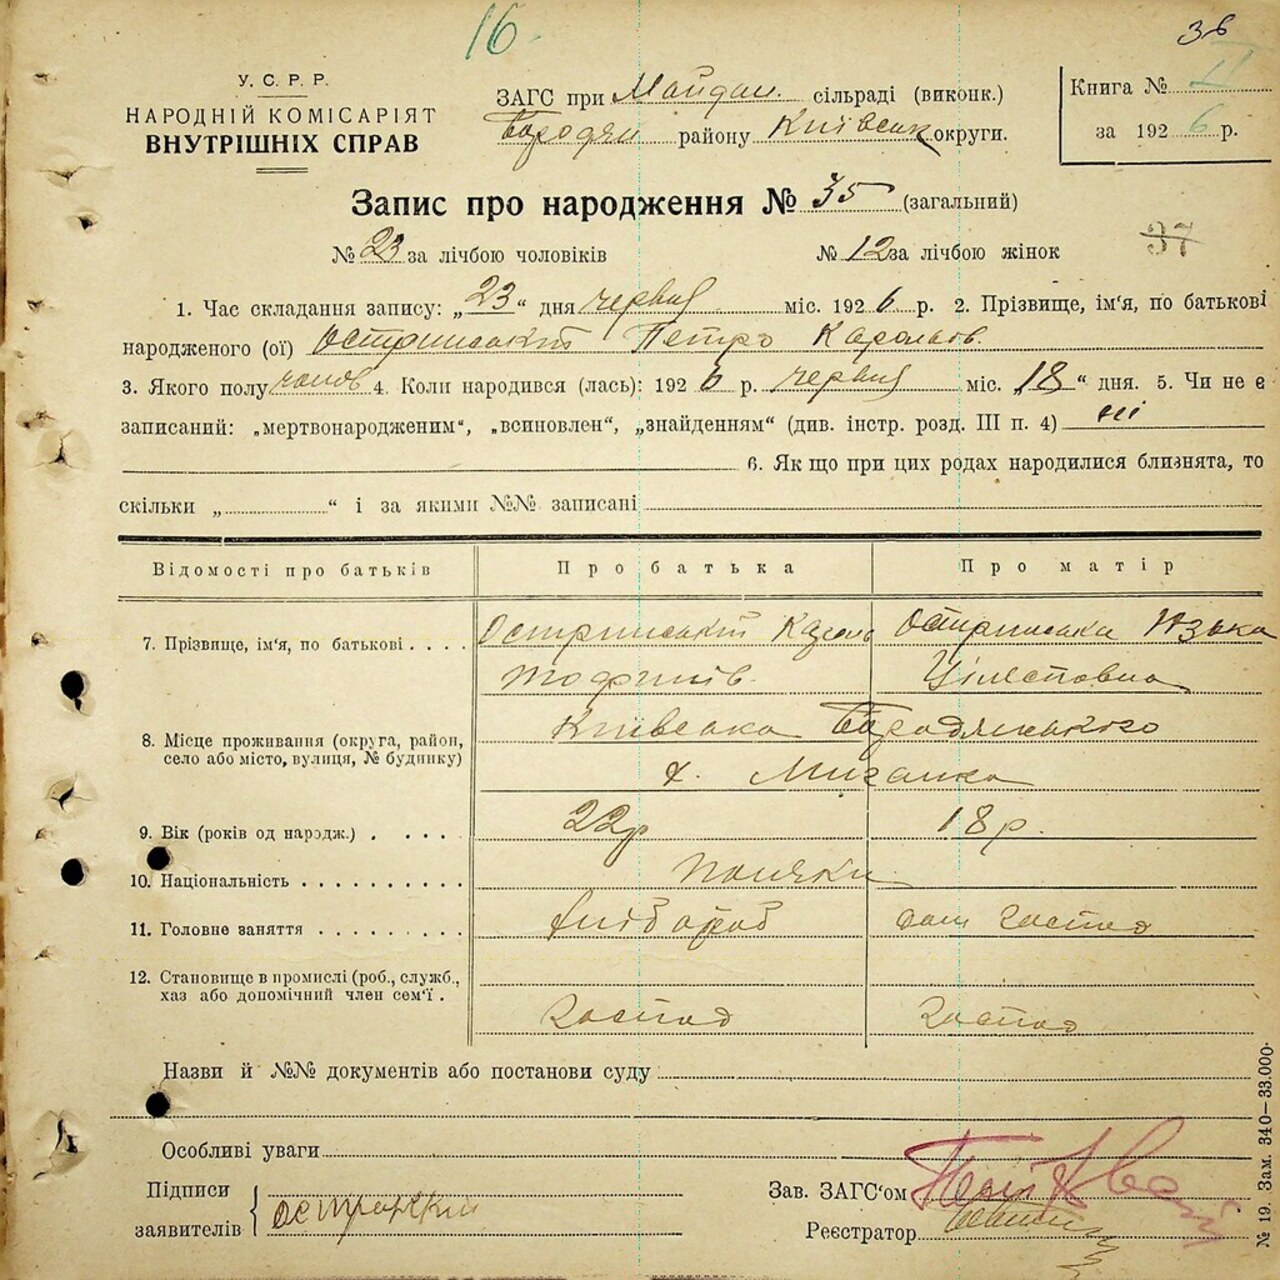 16
36
У. С. Р. Р.
НАРОДНІЙ КОМІСАРІЯТ
ВНУТРІШНІХ СПРАВ
ЗАГС при Майдан. сільраді (виконк.)
Бородян району Київськ округи.
Книга № II
за 1926 р.
Запис про народження № 35 (загальний)
37
№ 23 за лічбою чоловіків № 12 за лічбою жінок
1. Час складання запису: „23“ дня червня міс. 1926 р. 2. Прізвище, ім'я, по батькові
народженого (ої) Остринський Петро Карольов.
3. Якого полу чолов 4. Коли народився (лась): 1926 р. червня міс. „18“ дня. 5. Чи не є
записаний: „мертвонародженим“, „всиновлен“, „знайденням“ (див. інстр. розд. III п. 4) ні
6. Як що при цих родах народилися близнята, то
скільки „ “ і за якими №№ записані
Відомості про батьків Про батька Про матір
7. Прізвище, ім'я, по батькові . . . . Остринський Кароль Остринська Юзька
Цілестовна
8. Місце проживання (округа, район,
село або місто, вулиця, № будинку)
Київська Бородянського
х. Мигалка
9. Вік (років од народж.) . . . . . 22р 18 р.
10. Національність . . . . . . . . . . Поляки
11. Головне заняття . . . . . . . . . хлібороб дом господ
12. Становище в промислі (роб., служб.,
хаз або допомічний член сем'ї .
господ господ
Назви й №№ документів або постанови суду
Особливі уваги
Підписи
заявителів
Зав. ЗАГС'ом
Реєстратор
№ 19. Зам. 340—33.000.